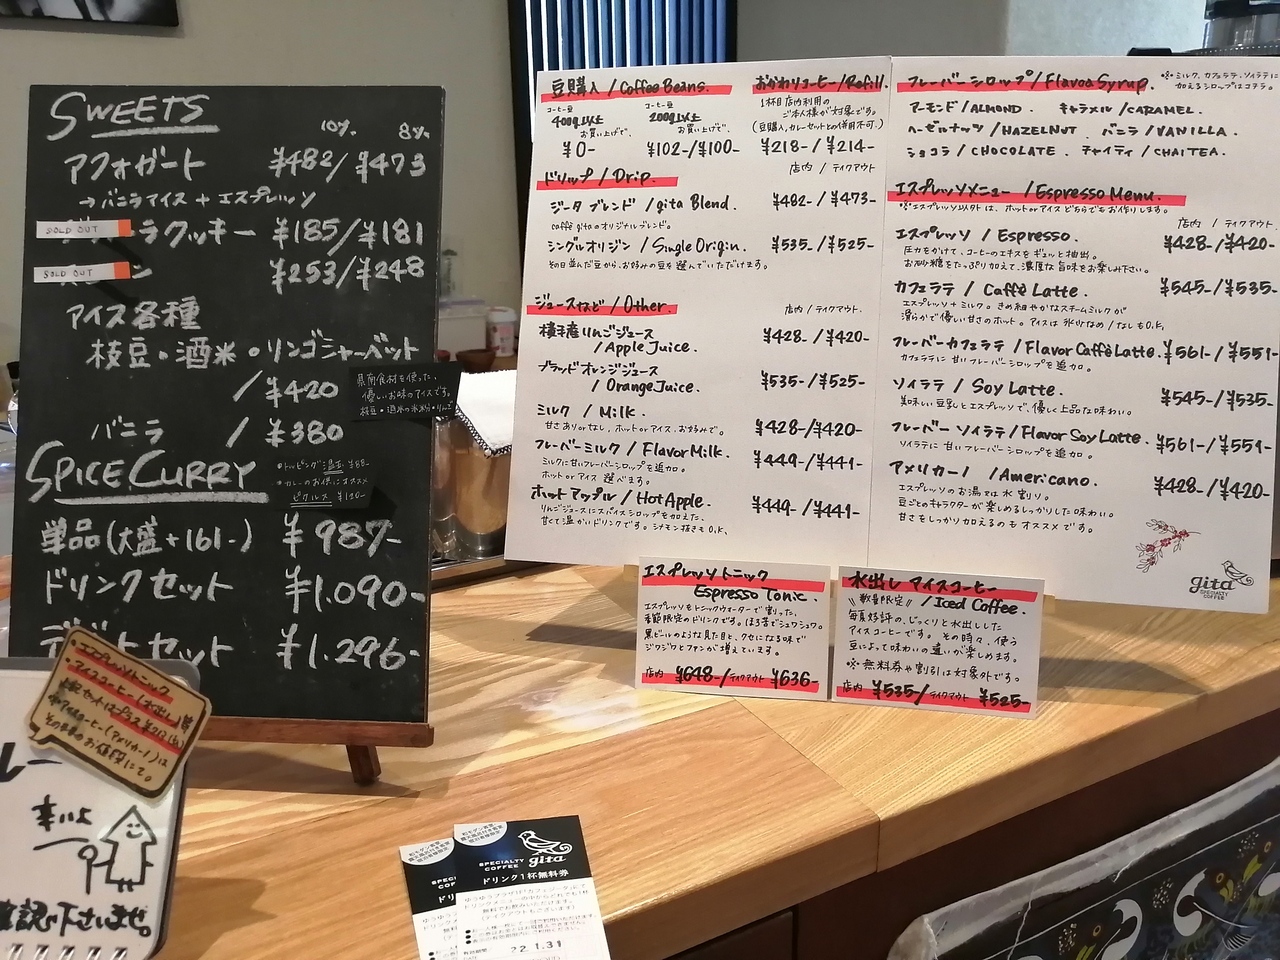 SWEETS
10%. 8%.
アフォガート ¥482/¥473
→バニラアイス+エスプレッソ
SOLD OUT
ラクッキー ¥185/¥181
SOLD OUT
ン ¥253/¥248
アイス各種
枝豆・酒米・リンゴシャーベット
/¥420
県南食材を使った、
優しいお味のアイスです。
バニラ /¥380
SPICE CURRY
・トッピング温玉 ¥88-
・カレーのお供にオススメ
ピクルス ¥120-
単品(大盛+161-) ¥987-
ドリンクセット ¥1.090-
セット ¥1.296-
・エスプレッソトニック
・アイスコーヒー(水出し)等
※アイスコーヒー(アメリカーノ)は
そのままのお値段にて。
辛いよ
確認下さいませ。
豆購入/Coffee Beans.
コーヒー豆 コーヒー豆
400g以上 200g以上
お買い上げで、 お買い上げで、
¥0- ¥102-/¥100-
おかわりコーヒー/Refill.
1杯目店内利用の
ご本人様が対象です。
(豆購入,カレーセットとの併用不可.)
¥218-/¥214-
ドリップ/Drip.
店内/テイクアウト
ジータブレンド/gita Blend. ¥482-/¥473-
caffé gitaのオリジナルブレンド。
シングルオリジン/Single Origin. ¥535-/¥525-
その日並んだ豆から、お好みの豆を選んでいただけます。
ジュースなど/Other.
店内/テイクアウト.
横手産りんごジュース
/Apple Juice. ¥428-/¥420-
ブラッドオレンジジュース
/Orange Juice. ¥535-/¥525-
ミルク/Milk. ¥428-/¥420-
甘さありorなし、ホットorアイス、お好みで。
フレーバーミルク/Flavor Milk. ¥449-/¥441-
ミルクに甘いフレーバーシロップを追加。
ホットorアイス選べます。
ホットアップル/Hot Apple. ¥449-/¥441-
りんごジュースにスパイスシロップを加えた、
甘くて温かいドリンクです。シナモン抜きもO.K.
フレーバーシロップ/Flavor Syrup.
※ミルク、カフェラテ、ソイラテに
加えるシロップはコチラ。
アーモンド/ALMOND. キャラメル/CARAMEL.
ヘーゼルナッツ/HAZELNUT. バニラ/VANILLA.
ショコラ/CHOCOLATE. チャイティ/CHAI TEA.
エスプレッソメニュー/Espresso Menu.
※エスプレッソ以外は、ホットorアイスどちらでもお作りします。
店内/テイクアウト.
エスプレッソ/Espresso. ¥428-/¥420-
圧力をかけて、コーヒーのエキスをギュッと抽出。
お砂糖をたっぷり加えて、濃厚な旨味をお楽しみ下さい。
カフェラテ/Caffè Latte. ¥545-/¥535-
エスプレッソ+ミルク。きめ細やかなスチームミルクが
滑らかで優しい甘さのホット。アイスは氷少なめ/なしもO.K.
フレーバーカフェラテ/Flavor Caffè Latte. ¥561-/¥551-
カフェラテに甘いフレーバーシロップを追加。
ソイラテ/Soy Latte. ¥545-/¥535-
美味しい豆乳とエスプレッソで、優しく上品な味わい。
フレーバーソイラテ/Flavor Soy Latte. ¥561-/¥551-
ソイラテに甘いフレーバーシロップを追加。
アメリカーノ/Americano. ¥428-/¥420-
エスプレッソのお湯又は水割り。
豆ごとのキャラクターが楽しめるしっかりした味わい。
甘さをしっかり加えるのもオススメです。
gita
SPECIALTY
COFFEE
エスプレッソトニック
Espresso Tonic.
エスプレッソをトニックウォーターで割った、
季節限定のドリンクです。ほろ苦でシュワシュワ。
黒ビールのような見た目と、クセになる味で
ジワジワとファンが増えています。
店内 ¥648-/テイクアウト ¥636-
水出しアイスコーヒー
数量限定/Iced Coffee.
毎夏好評の、じっくりと水出しした
アイスコーヒーです。その時々、使う
豆によって味わいの違いが楽しめます。
※無料券や割引は対象外です。
店内 ¥535-/テイクアウト ¥525-
SPECIALTY
COFFEE gita
ドリンク1杯無料券
22.1.31